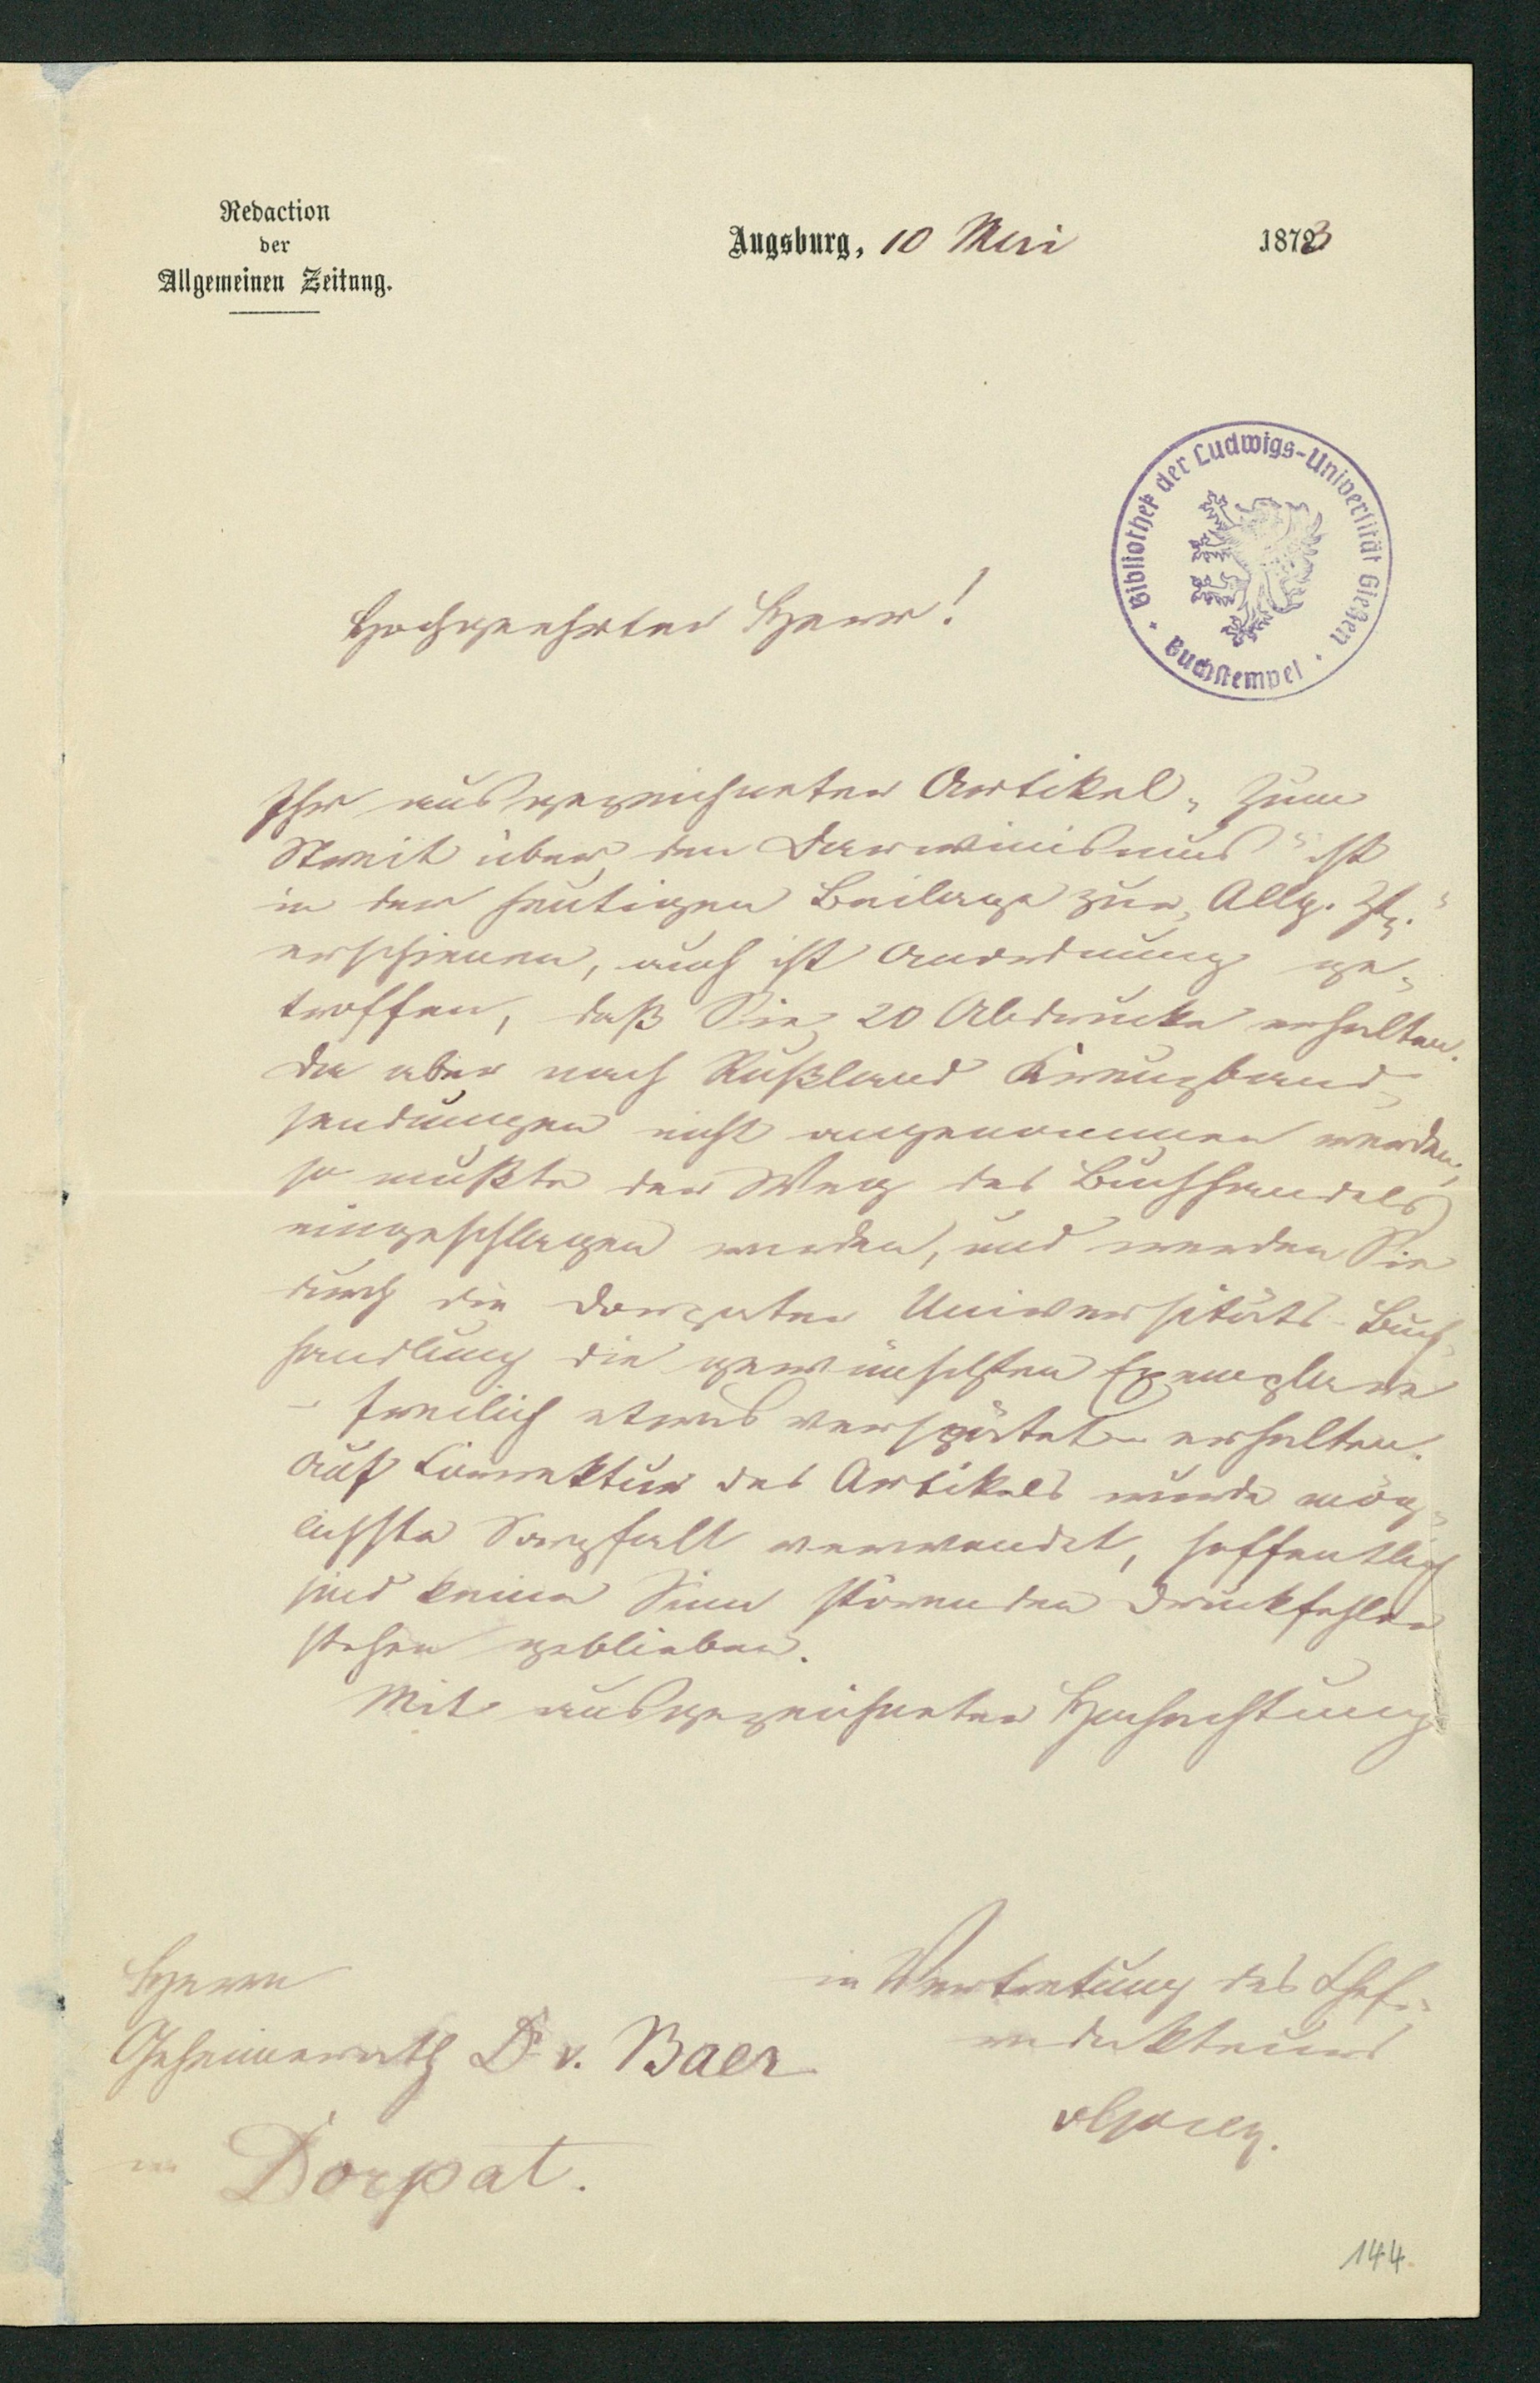 Redaction
der
Allgemeinen Zeitung.
Augsburg, 10 Mai 1873
Bibliothek der Ludwigs-Universität Gießen
Buchstempel
Hochgeehrter Herr!
Ihr ausgezeichneter Artikel „Zum
Streit über den Darwinismus“ ist
in der heutigen Beilage zur „Allg. Ztg.“
erschienen, auch ist Anordnung ge-
troffen, daß Sie 20 Abdrucke erhalten.
Da aber nach Rußland Kreuzband-
sendungen nicht angenommen werden,
so mußte der Weg des Buchhandels
eingeschlagen werden, und werden Sie
durch die Dorpater Universitäts-Buch-
handlung die gewünschten Exemplare
– freilich etwas verspätet – erhalten.
Auf Correktur des Artikels wurde mög-
lichste Sorgfalt verwendet, hoffentlich
sind keine Sinn störenden Druckfehler
stehen geblieben.
Mit ausgezeichneter Hochachtung
in Vertretung des Chef-
redakteurs
Herrn
Geheimerath Dr v. Baer
in Dorpat.
144